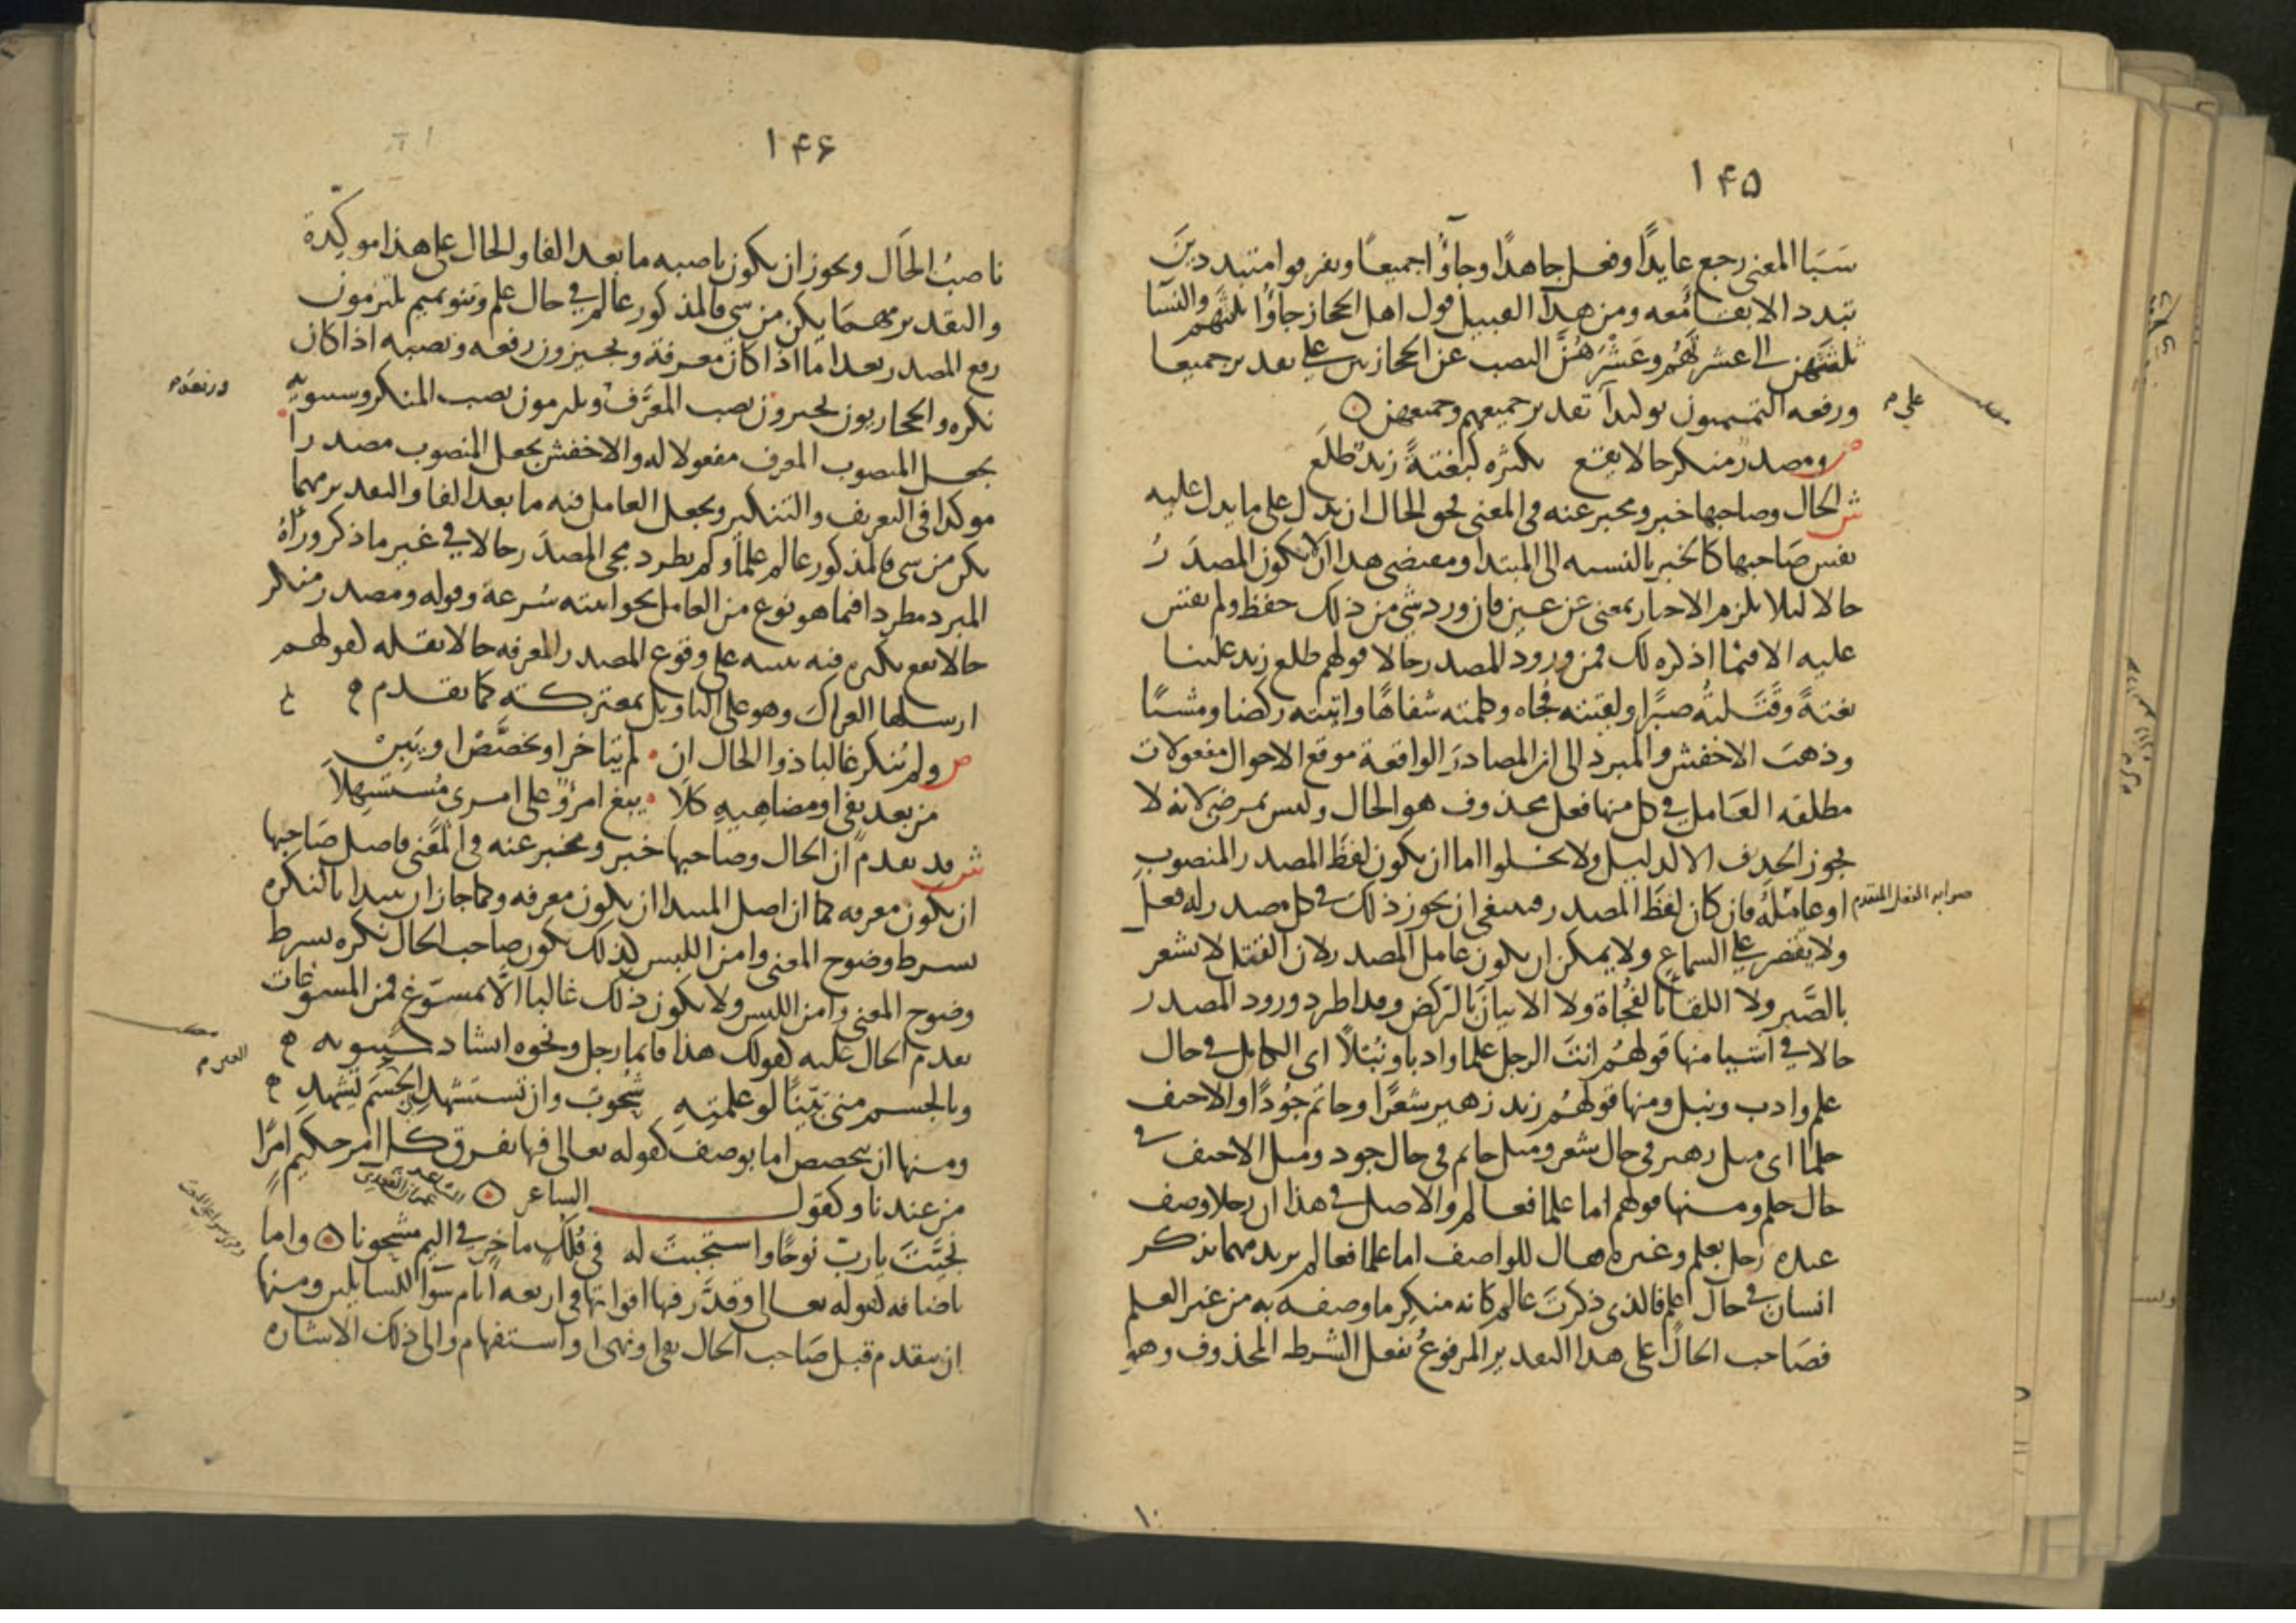 ۱۴۵
سببا المعنى رجع عايدًا وفعل جاهدًا وجاؤا جميعًا وتفرقوا متبددين
تبدد الابقا معه ومن هذا القبيل قول اهل الحجاز جاؤا ثلثتهم والنسا
ثلثتهن الى عشرتهم وعشرهن النصب عن الحجازيين على تقدير جميعا
ورفعه التميميون توكيدا على تقدير جميعهم وجميعهن
ص ومصدر منكر حالا يقع بكثرة كبغتةً زيد طلع
ش الحال وصاحبها خبر ومخبر عنه في المعنى فحق الحال ان يدل على ما يدل عليه
نفس صاحبها كالخبر بالنسبه الى المبتدا ومقتضى هذا ان لا يكون المصدر
حالا ليلا يلزم الاخبار بمعنى عن عين فان ورد شي من ذلك حفظ ولم يقس
عليه الا فيما اذكره لك فمن ورود المصدر حالا قولهم طلع زيد علينا
بغتةً وقتلته صبرًا ولقيته فجاه وكلمته شفاهًا واتيته ركضا ومشيًا
وذهب الاخفش والمبرد الى ان المصادر الواقعة موقع الاحوال مفعولات
مطلقه العامل في كل منها فعل محذوف هو الحال وليس بمرضي لانه لا
يجوز الحذف الا لدليل ولا يخلوا اما ان يكون لفظ المصدر المنصوب
او عامله فان كان لفظ المصدر فينبغي ان يجوز ذلك في كل مصدر له فعل
ولا يقتصر على السماع ولا يمكن ان يكون عامل المصدر لان القتل لا يشعر
بالصبر ولا اللقا بالفجاة ولا الاتيان بالركض وقد اطرد ورود المصدر
حالا في اشيا منها قولهم انت الرجل علما وادبا ونبلًا اى الكامل في حال
علم وادب ونبل ومنها قولهم زيد زهير شعرًا وحاتم جودًا والاحنف
حلما اى مثل زهير في حال شعر ومثل حاتم في حال جود ومثل الاحنف في
حال حلم ومنها قولهم اما علما فعالم والاصل في هذا ان رجلا وصف
عنده رجل بعلم وغيره فقال للواصف اما علما فعالم يريد مهما يذكر
انسان في حال علم فالذى ذكرت عالم كانه منكر ما وصفه به من غير العلم
فصاحب الحال على هذا التقدير المرفوع بفعل الشرط المحذوف وهو
۱۴۶
ناصب الحال ويجوز ان يكون ناصبه ما بعد الفا والحال على هذا موكدة
والتقدير مهما يكن من شي فالمذكور عالم في حال علم وبنو تميم يلتزمون
رفع المصدر بعد اما اذا كان معرفة ويجيزون رفعه ونصبه اذا كان
نكره والحجازيون يجيزون نصب المعرف ويلزمون نصب المنكر وسيبويه
يجعل المنصوب المعرف مفعولا له والاخفش يجعل المنصوب مصدرا
موكدا في التعريف والتنكير ويجعل العامل فيه ما بعد الفا والتقدير مهما
يكن من شي فالمذكور عالم علما ولم يطرد مجي المصدر حالا في غير ما ذكر ورآه
المبرد مطردا فيما هو نوع من العامل نحو اتيته سرعة وقوله ومصدر منكر
حالا يقع بكثره فيه تنبيه على وقوع المصدر المعرفه حالا بقله كقولهم
ارسلها العراك وهو على التاويل بمعتركة كما تقدم
ص ولم ينكر غالبا ذوا الحال ان لم يتاخر او يخصص او يبن
من بعد نفي او مضاهيه كلا يبغ امرؤ على امرى مستسهلا
ش قد تقدم ان الحال وصاحبها خبر ومخبر عنه في المعنى فاصل صاحبها
ان يكون معرفه كما ان اصل المبتدا ان يكون معرفه وكما جاز ان يبتدا بالنكره
بشرط وضوح المعنى وامن اللبس كذلك يكون صاحب الحال نكره بشرط
وضوح المعنى وامن اللبس ولا يكون ذلك غالبا الا بمسوغ فمن المسوغات
تقدم الحال عليه كقولك هذا قايما رجل ونحوه انشاد سيبويه
وبالجسم مني بينًا لو علمتِهِ شحوبٌ وان تستشهدي الجسم تشهدِ
ومنها ان يخصص اما بوصف كقوله تعالى فيها يفرق كل امر حكيم امرًا
من عندنا وكقول الشاعر
نجيت يا رب نوحًا واستجبت له في فلكٍ ماخرٍ في اليم مشحونا واما
باضافه كقوله تعالى وقدر فيها اقواتها في اربعه ايام سوا للسايلين ومنها
ان يتقدم قبل صاحب الحال نفي او نهى او استفهام والى ذلك الاشاره